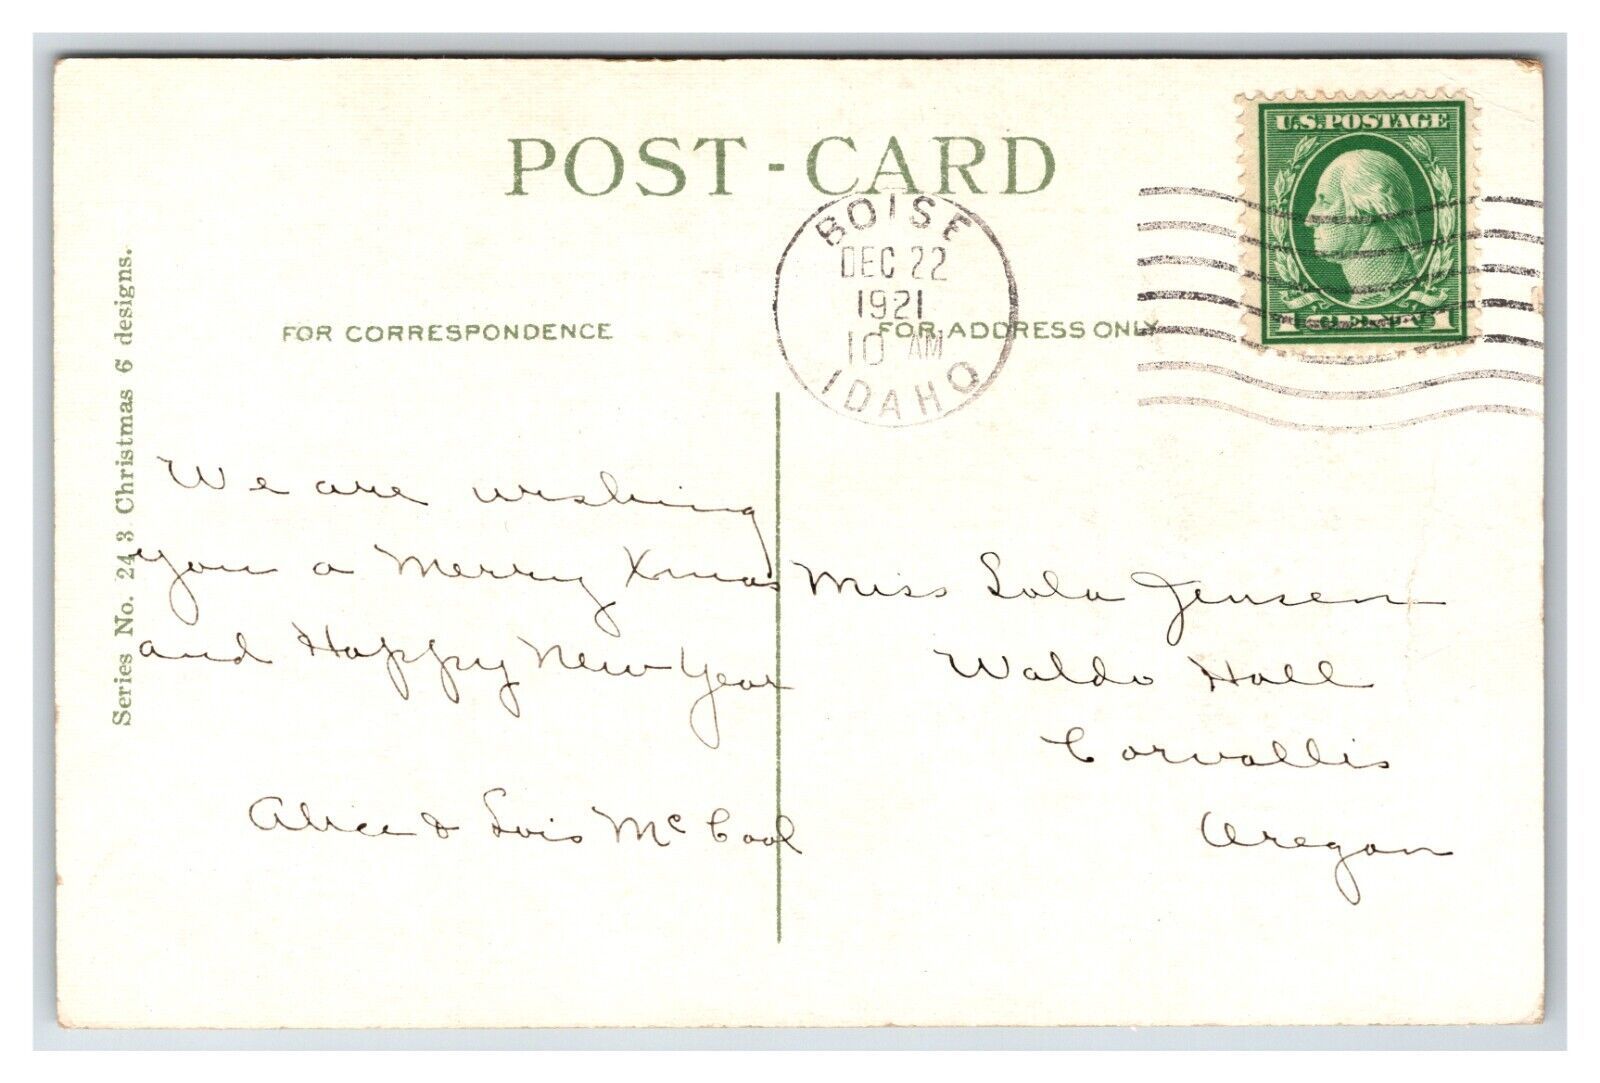 POST-CARD
BOISE
DEC 22
1921
10 AM
IDAHO
U.S. POSTAGE
1 CENT 1
FOR CORRESPONDENCE
FOR ADDRESS ONLY
Series No. 243 Christmas 6 designs.
We are wishing
you a Merry Xmas
and Happy New Year
Alice & Lois McCool
Miss Lola Jensen
Waldo Hall
Corvallis
Oregon